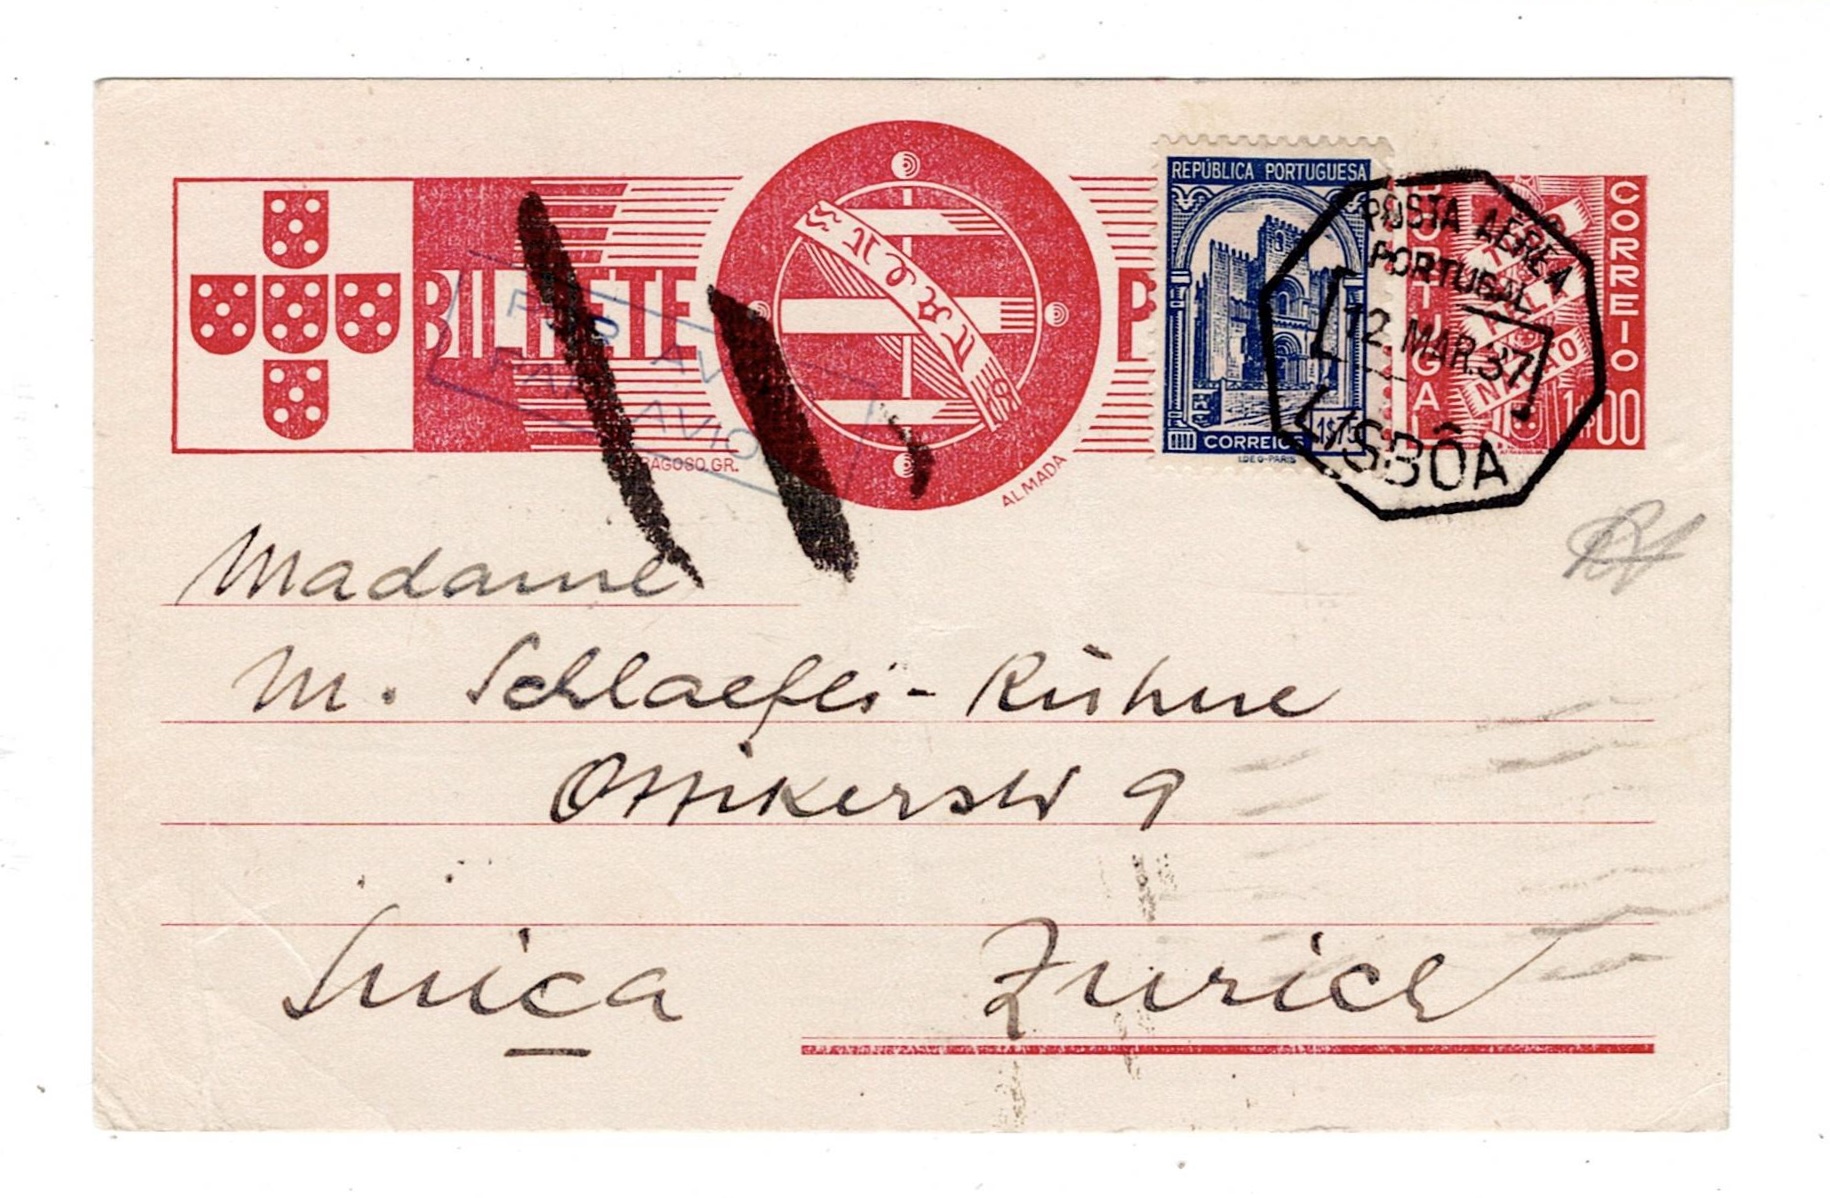 REPÚBLICA PORTUGUESA
CORREIO
BILHETE
P
CORREIOS 1$75
IDEQ-PARIS
1$00
POSTA AEREA
PORTUGAL
12. MAR. 37
LISBÔA
PAR AVION
RAGOSO. GR.
ALMADA
Madame
M. Schlaefli-Kühne
Ottikerstr 9
Suiça Zurich